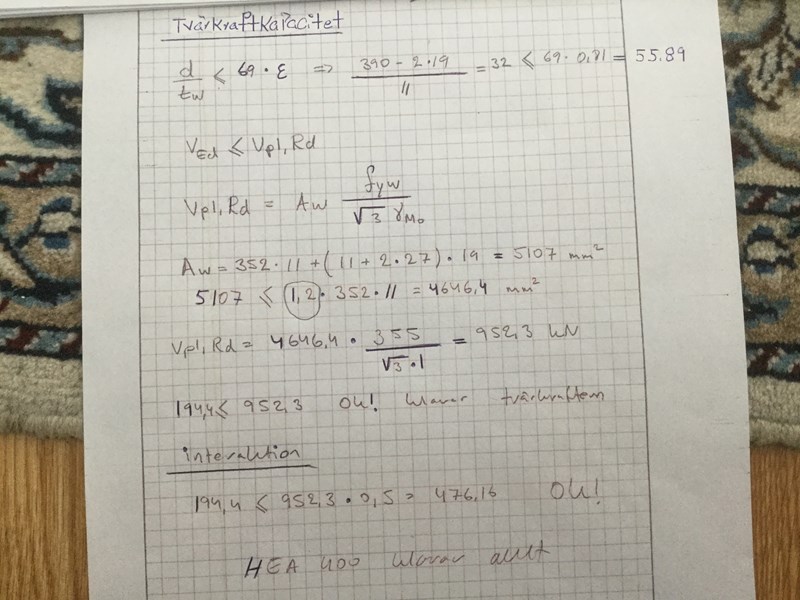 Tvärkraftkapacitet
d/tw ≤ 69·ε => (390-2·19)/11 = 32 ≤ 69·0,81 = 55.89
VEd ≤ Vpl,Rd
Vpl,Rd = Aw fyw/(√3 γM0)
Aw = 352·11+(11+2·27)·19 = 5107 mm²
5107 ≤ 1,2·352·11 = 4646,4 mm²
Vpl,Rd = 4646,4 · 355/(√3·1) = 952,3 kN
194,4 ≤ 952,3 Ok! klarar tvärkraften
interaktion
194,4 ≤ 952,3·0,5 = 476,16 OK!
HEA 400 klarar allt